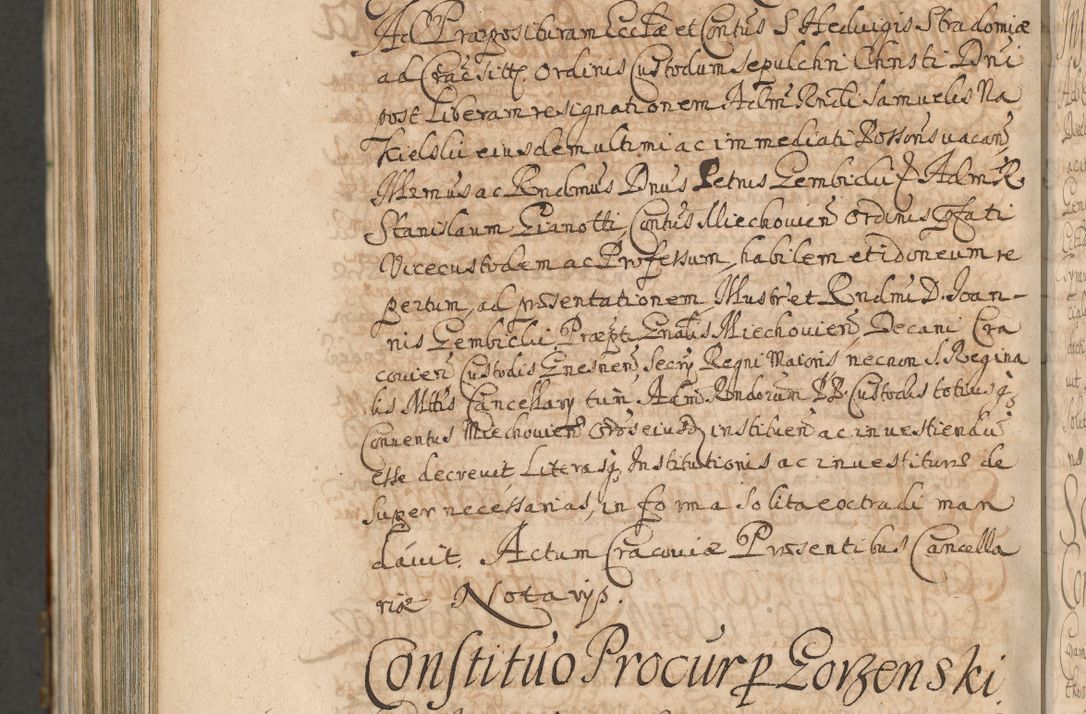 Ad Præposituram Eccłæ et Contûs S Hedvigis Stradomiæ
ad Crac̃ sittæ. Ordinis Custodum Sepulchri Christi Dni
post Liberam resignationem Adm̃ Rndi Samuelis Na
Kielski eiusdem ultimi ac immediati Possoris vacan̄,
Illmus ac Rndmus Dnus Petrus Gembicki Adm̃ R.
Stanislaum Gianotti, Contûs Miechovien̄ Ordinis Pfati
Vicecustodem ac Professum, habilem et idoneum re
pertum, ad præsentationem Illustr̃ et Rndmi D. Joan-
nis Gembicki Præpti Gnalis Miechovien̄, Decani Cra
covien̄ Custodis Gnesnen̄, Secrij Regni Maioris necnon S. Regina
lis Mttis Cancellarij tum Adm̃ Rndorum PP. Custodis totiusq̃
Conventus Miechovien̄ Ordis eiusd̃ instituen̄ ac investiendũ
esse decrevit Literasq̃ Institutionis ac investituræ de
super necessarias, in forma solita extradi man
davit. Actum Cracoviæ Præsentibus Cancella
riæ Notarijs.
Constitũo Procur p Gorzenski